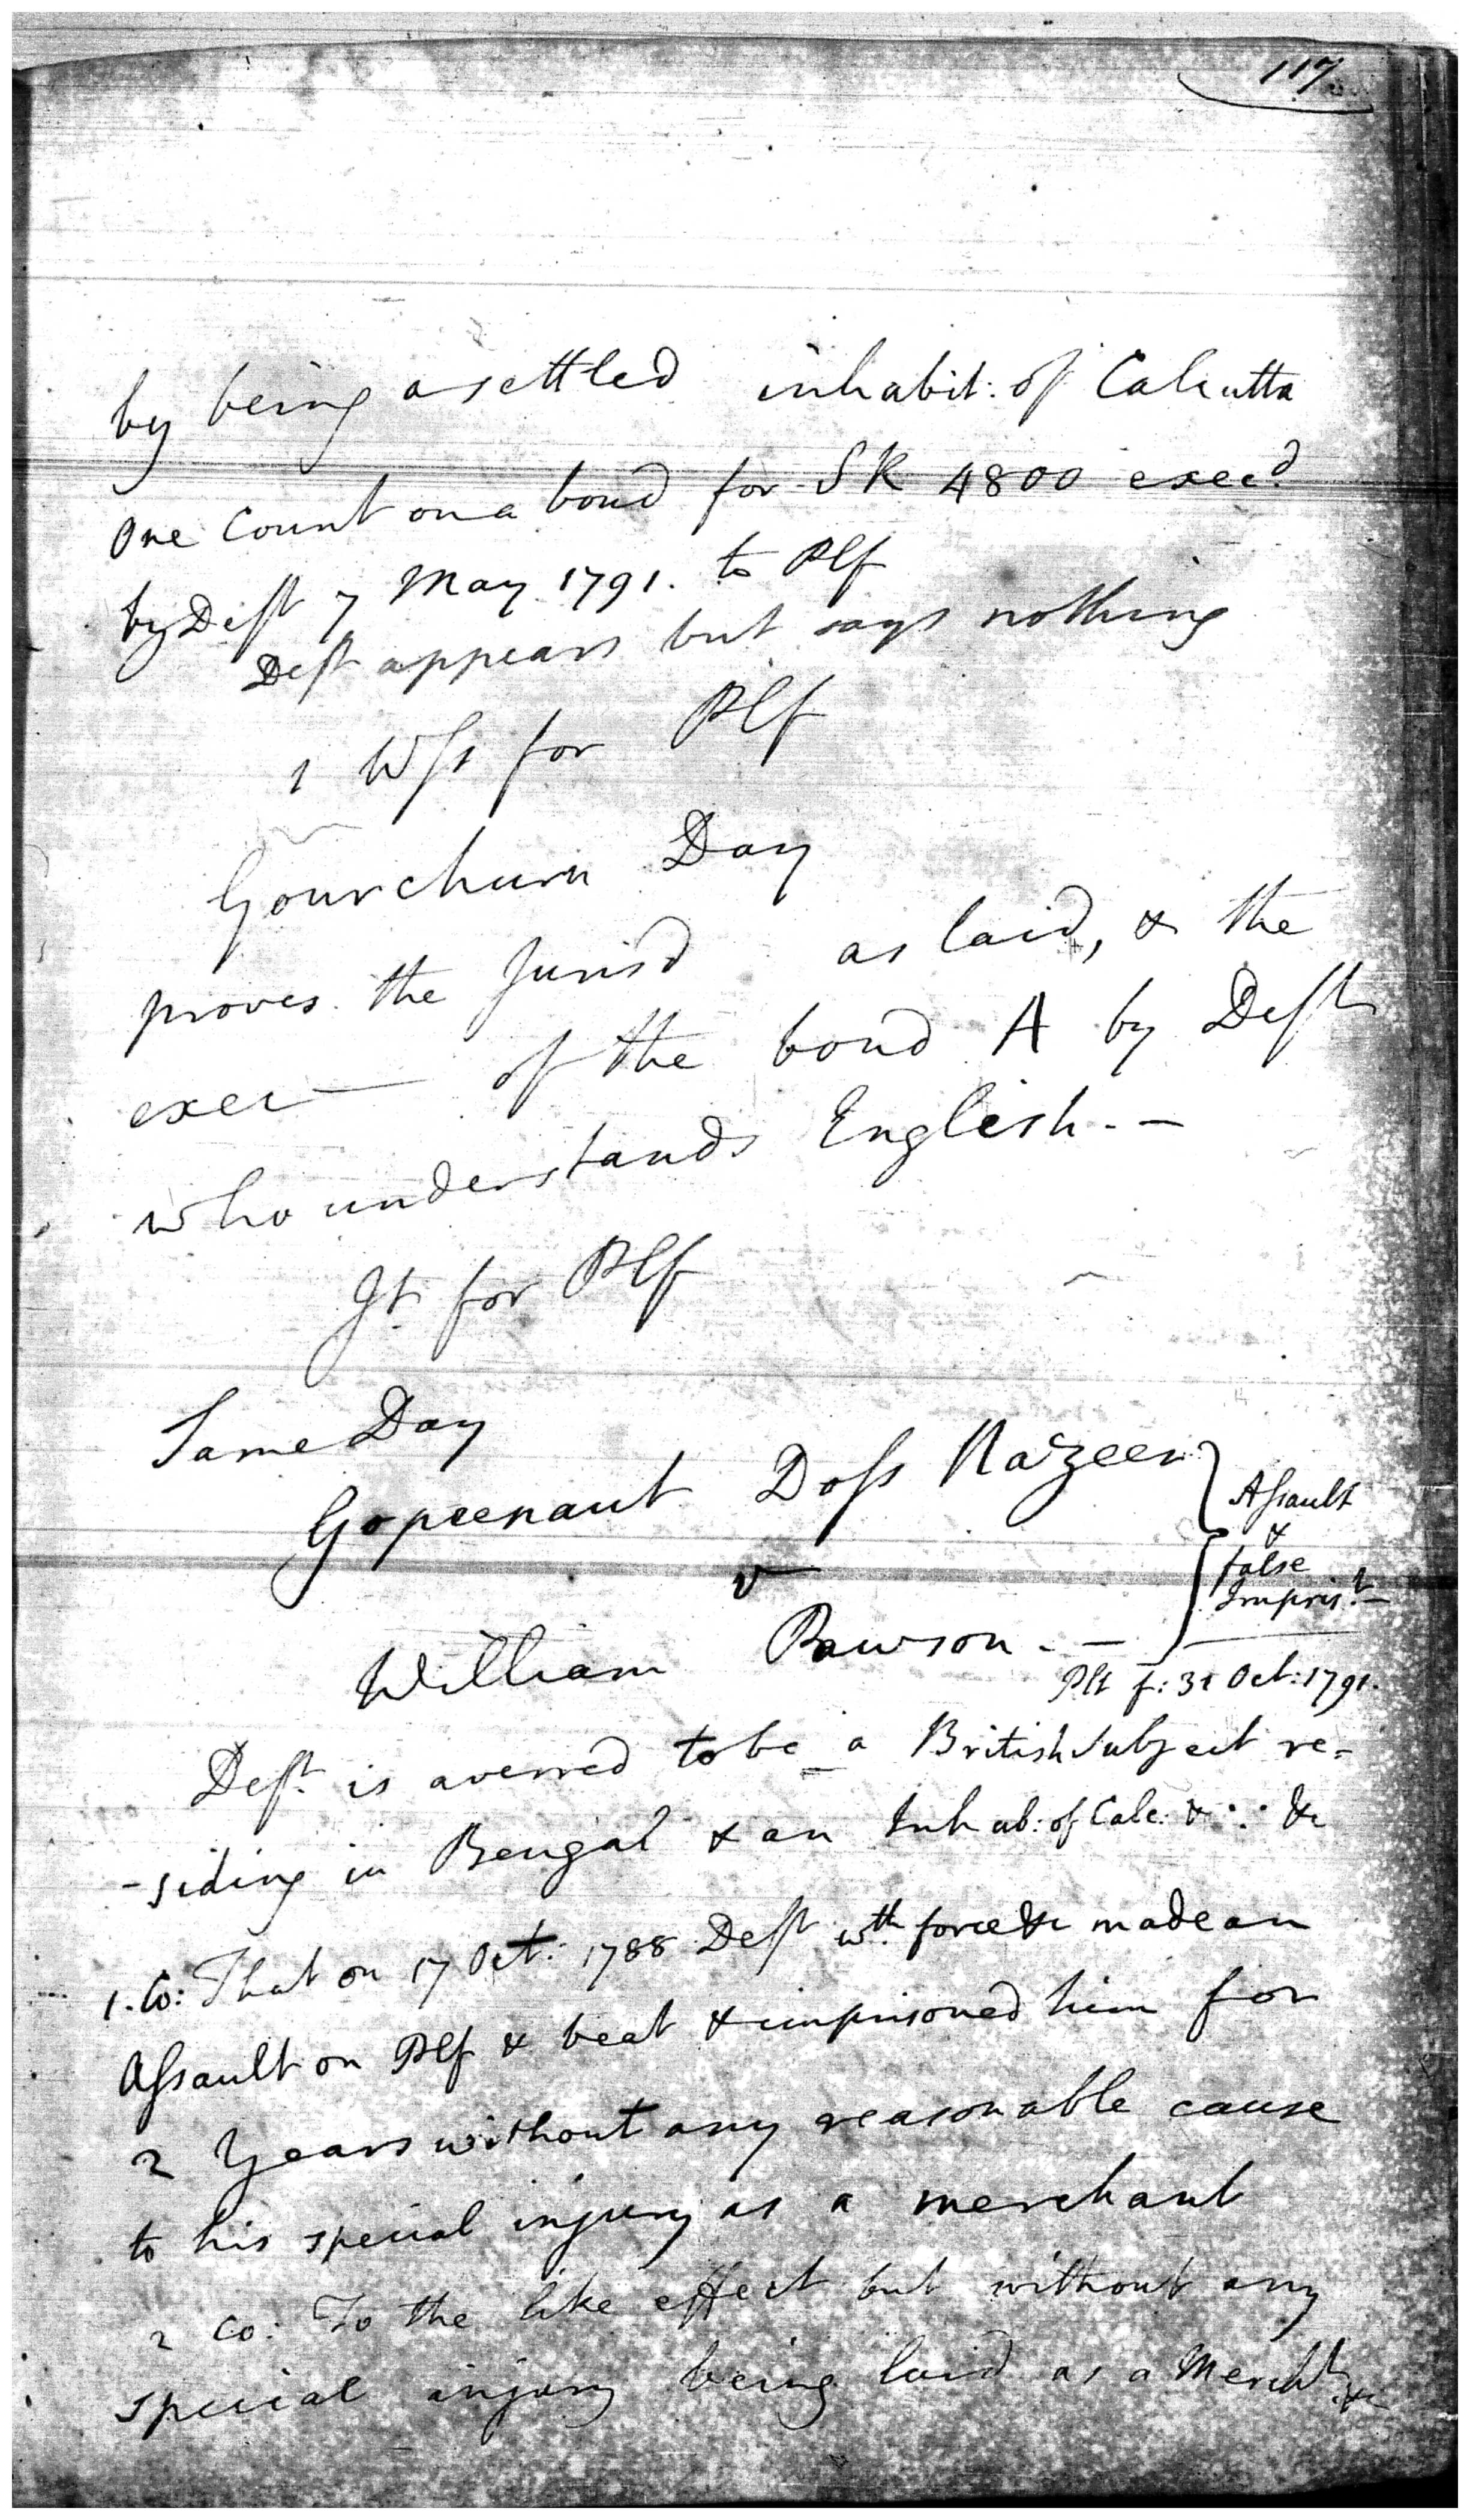 117
by being a settled inhabit: of Calcutta
One Count on a bond for SR 4800 execd.
by Deft 7 May 1791. to Plf
Deft appears but says nothing
1 Wss for Plf
Gourchurn Day
proves the Jurisd as laid, & the
exec— of the bond A by Deft
who understands English. —
Jt. for Plf
Same Day
Gopeenaut Doss Nazeer
Assault
&
false
Imprist. —
v
William Pawson. —
Plt f: 31 Oct: 1791.
Deft. is averred to be a British Subject re=
-siding in Bengal & an Inhab: of Calc: & : : &c
1. Co: That on 17 Oct: 1788 Deft wth. force &c made an
Assault on Plf & beat & imprisoned him for
2 Years without any reasonable cause
to his special injury as a merchant
2 Co: To the like effect but without any
special injury being laid as a Mercht. &c